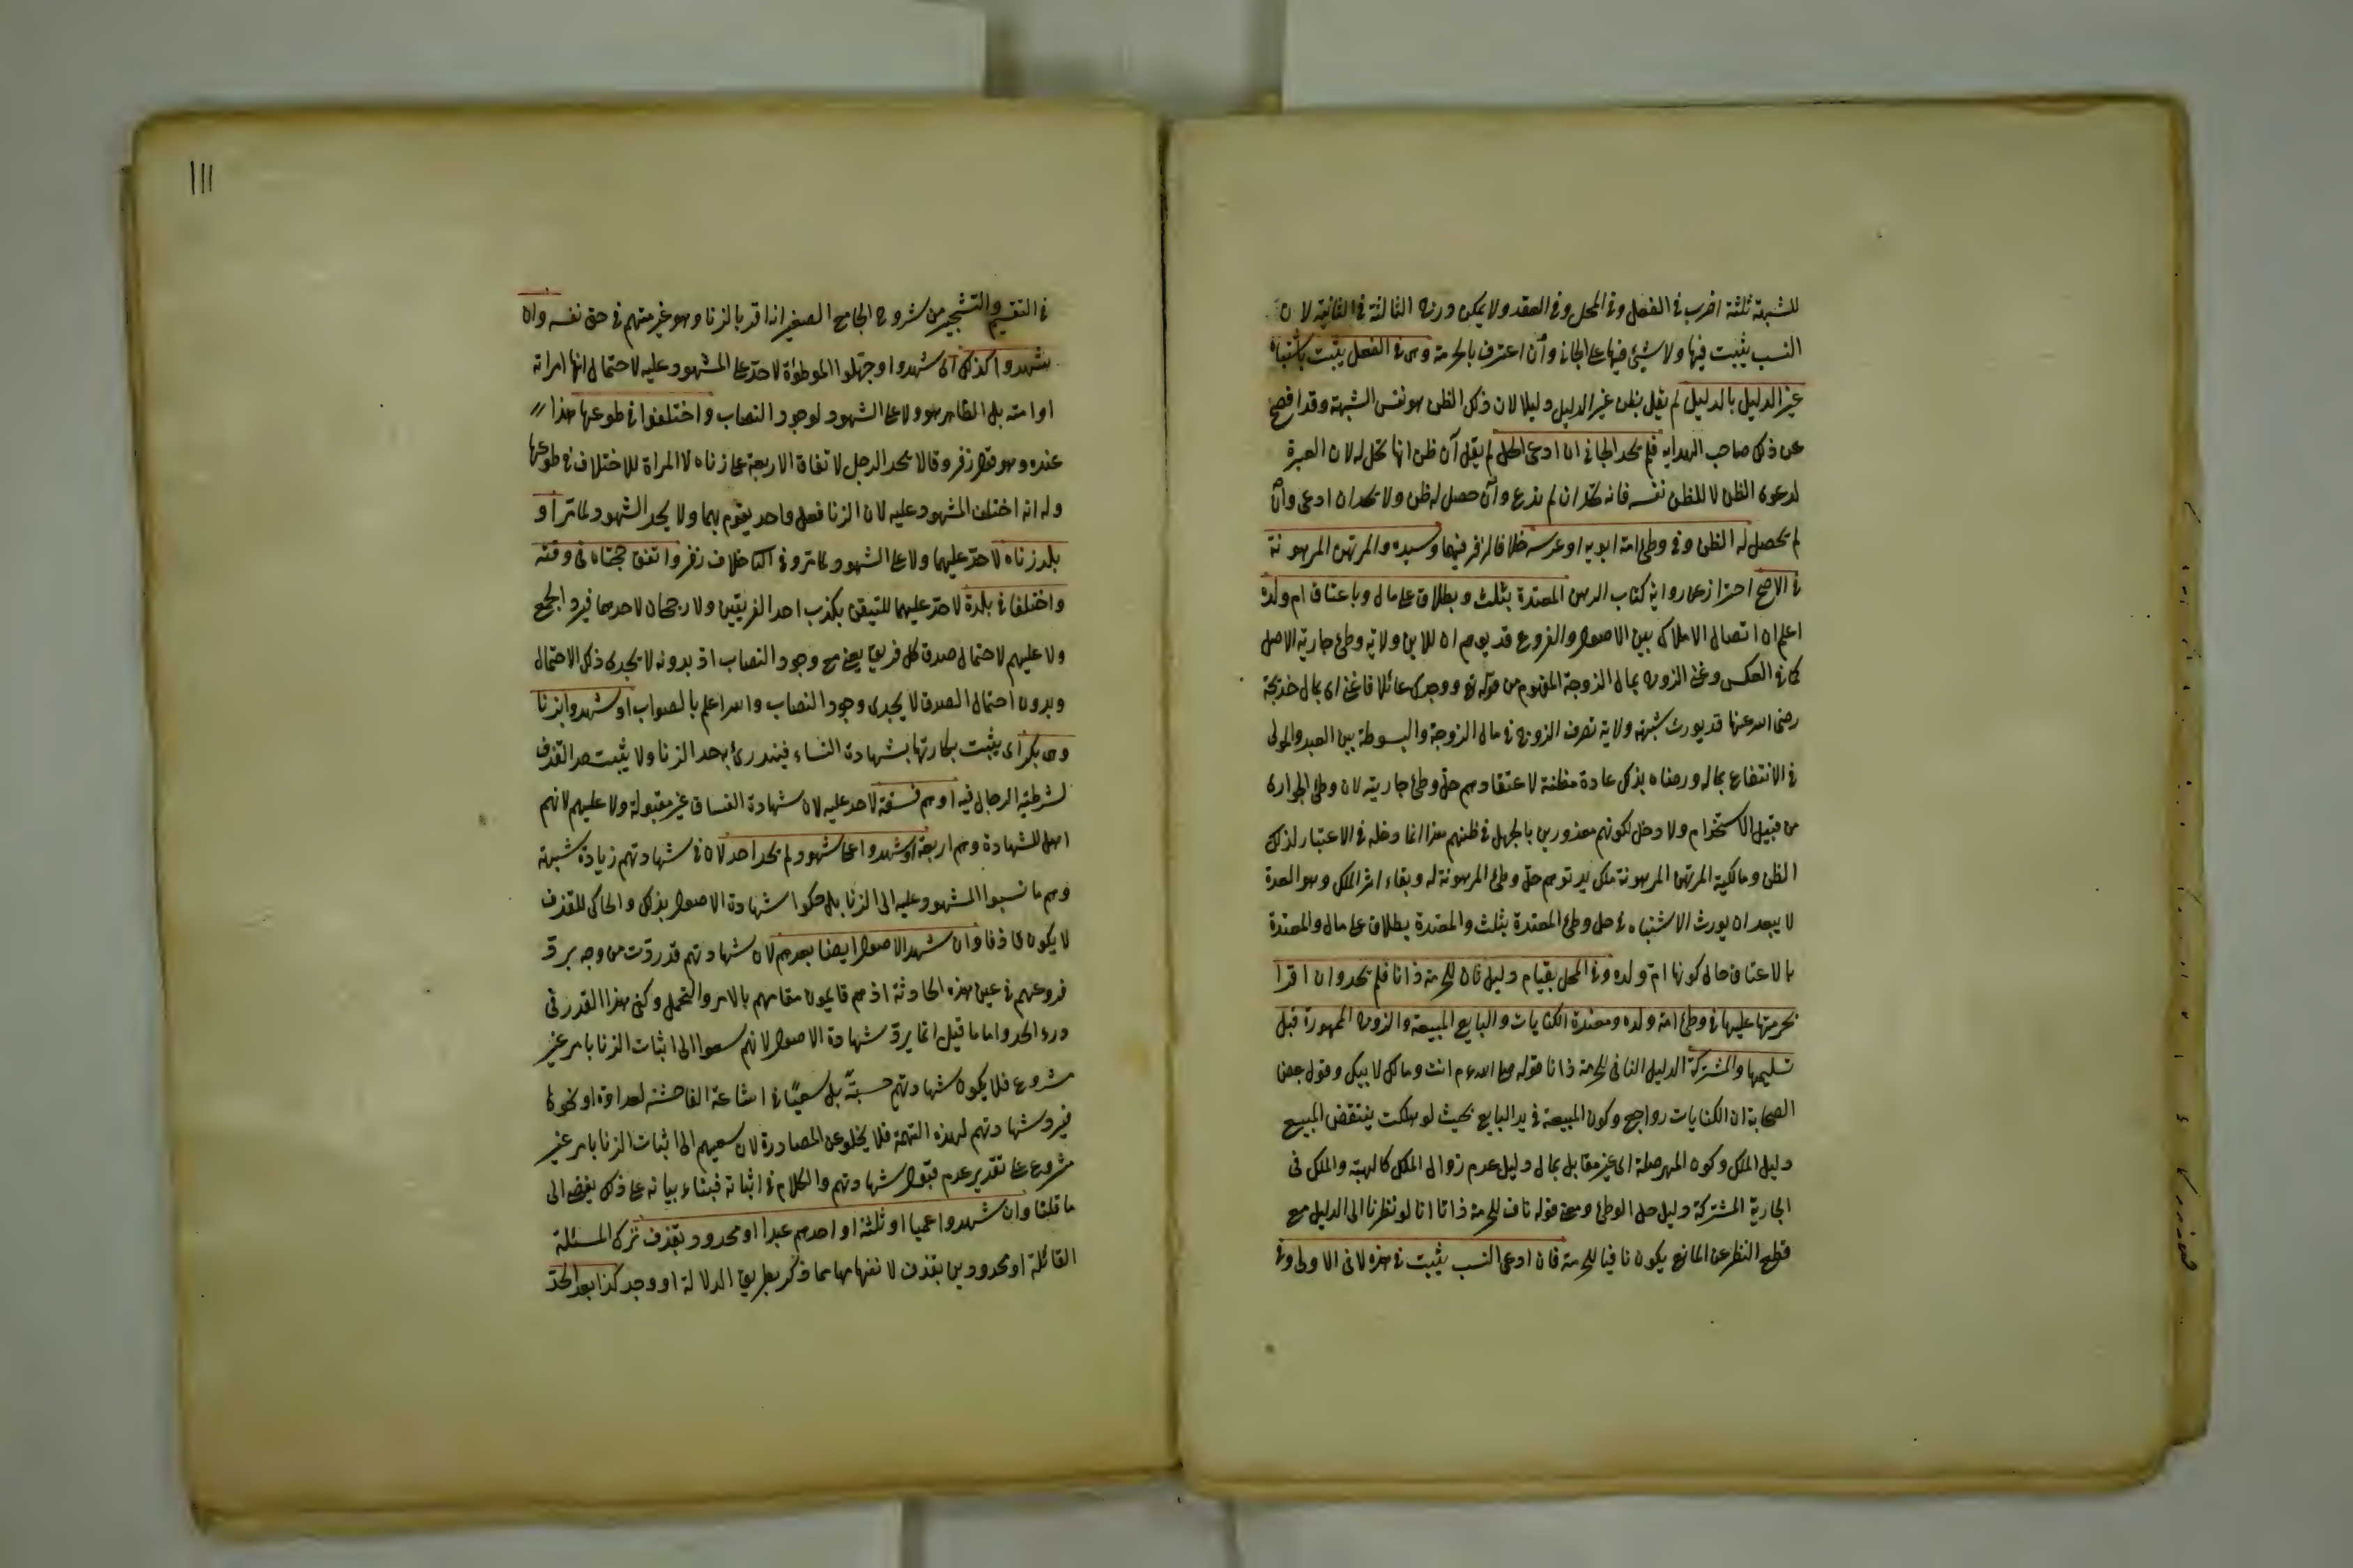 للشبهة ثلثة اضرب في الفعل وفي المحل وفي العقد ولا يمكن درج الثالثة في الثانية لان
النسب يثبت فيها ولا شيئ فيها على الجاني وان اعترف بالحرمة وهى في الفعل يثبت باشتباه
غير الدليل بالدليل لم يقل بظن غير الدليل دليلا لان ذلك الظن هو نفس الشبهة وقد افصح
عن ذلك صاحب الهداية فلم يحد الجاني ان ادعى الحل لم يقل ان ظن انها تحل له لان العبرة
لدعوى الظن لا للظن نفسه فانه يحد ان لم يدع وان حصل له ظن ولا يحد ان ادعى وان
لم يحصل له الظن وفي وطئ امة ابويه او عرسه خلافا لزفر فيهما وسيده والمرتهن المرهونة
في الاصح احترز عن رواية كتاب الرهن المعتدة بثلث وبطلاق على مال وباعتاق ام ولده
اعلم ان اتصال الاملاك بين الاصول والفروع قد يوهم ان للابن ولاية وطئ جارية الاصل
كما في العكس وغنى الزوج بمال الزوجة المفهوم من قوله تع ووجدك عائلا فاغنى اى بمال خديجة
رضى الله عنها قد يورث شبهة ولاية تصرف الزوج في مال الزوجة والبسوطة بين العبد والمولى
في الانتفاع بماله ورضاه بذلك عادة مظنة لاعتقادهم حل وطئ جاريته لان وطئ الجوارى
من قبيل الاستخدام ولا دخل لكونهم معذورين بالجهل في ظنهم هذا انما دخله في الاعتبار لذلك
الظن ومالكية المرتهن المرهونة ملك يد توهم حل وطئ المرهونة له وبقاء اثر الملك وهو العدة
لا يبعد ان يورث الاشتباه في حل وطئ المعتدة بثلث والمعتدة بطلاق على مال والمعتدة
بالاعتاق حال كونها ام ولده وفي المحل بقيام دليل ناف للحرمة ذاتا فلم يحد وان اقر
بحرمتها عليها في وطئ امة ولده ومعتدة الكنايات والبايع المبيعة والزوج الممهورة قبل
تسليمها والمشتركة الدليل النافى للحرمة ذاتا قوله عم انت ومالك لابيك وقول بعض
الصحابة ان الكنايات رواجع وكون المبيعة في يد البايع بحيث لو هلكت ينتقض المبيع
دليل الملك وكون المهر صلة اى غير مقابل بمال دليل عدم زوال الملك كالهبة والملك فى
الجارية المشتركة دليل حل الوطئ ومعنى قوله ناف للحرمة ذاتا انا لو نظرنا الى الدليل مع
قطع النظر عن المانع يكون نافيا للحرمة فان ادعى النسب يثبت في هذه لا فى الاولى وفي
١١١
في التقسيم والتشجير من شروح الجامع الصغير اذا اقر بالزنا وهو غير متهم في حق نفسه وان
شهدوا كذلك اى شهدوا وجهلوا الموطؤة لا حد على المشهود عليه لاحتمال انها امراته
او امته بل الظاهر هو ولا على الشهود لوجود النصاب واختلفوا في طوعها هذا
عنده وهو قول زفر وقالا يحد الرجل لاتفاق الاربعة على زناه لا المراة للاختلاف في طوعها
وله انه اختلف المشهود عليه لان الزنا فعل واحد يقوم بهما ولا يحد الشهود لما مر او
بلد زناه لا حد عليهما ولا على الشهود لما مر وفي خلاف زفر واتفق حجتاه فى وقته
واختلفا في بلدة لا حد عليهما للتيقن بكذب احد الفريقين ولا رجحان لاحدهما فيرد الجمع
ولا عليهم لاحتمال صدق كل فريق يعنى مع وجود النصاب اذ بدونه لا يجدى ذلك الاحتمال
وبدون احتمال الصدق لا يجدى وجود النصاب والله اعلم بالصواب او شهدوا بزنا
وهى بكر اى يثبت بكارتها بشهادة النساء فيندرئ به حد الزنا ولا يثبت حد القذف
لشرطية الرجال فيه او هم فسقة لا حد عليه لان شهادة الفساق غير مقبولة ولا عليهم لانهم
اهل للشهادة وهم اربعة او شهدوا على شهود لم يحد احد لان في شهادتهم زيادة شبهة
وهم ما نسبوا المشهود عليه الى الزنا بل حكوا شهادة الاصول بذلك والحاكى للقذف
لا يكون قاذفا وان شهد الاصول ايضا بعدهم لان شهادتهم قد ردت من وجه برد
فروعهم في عين هذه الحادثة اذ هم قايمون مقامهم بالامر والتحمل وكفى هذا القدر فى
درء الحد واما ما قيل انما يرد شهادة الاصول لانهم سعوا الى اثبات الزنا بامر غير
مشروع فلا يكون شهادتهم حسبة بل سعيا في اشاعة الفاحشة لعداوة او نحوها
فيرد شهادتهم لهذه التهمة فلا يخلو عن المصادرة لان سعيهم الى اثبات الزنا بامر غير
مشروع على تقدير عدم قبول شهادتهم والكلام في اثباته فبناء بيانه على ذلك يفضى الى
ما قلنا وان شهدوا عميا او ثلثة او احدهم عبد او محدود بقذف ترك المسئلة
القائلة او محدودين بقذف لا نفهامها مما ذكر بطريق الدلالة او وجد كذا بعد الحد